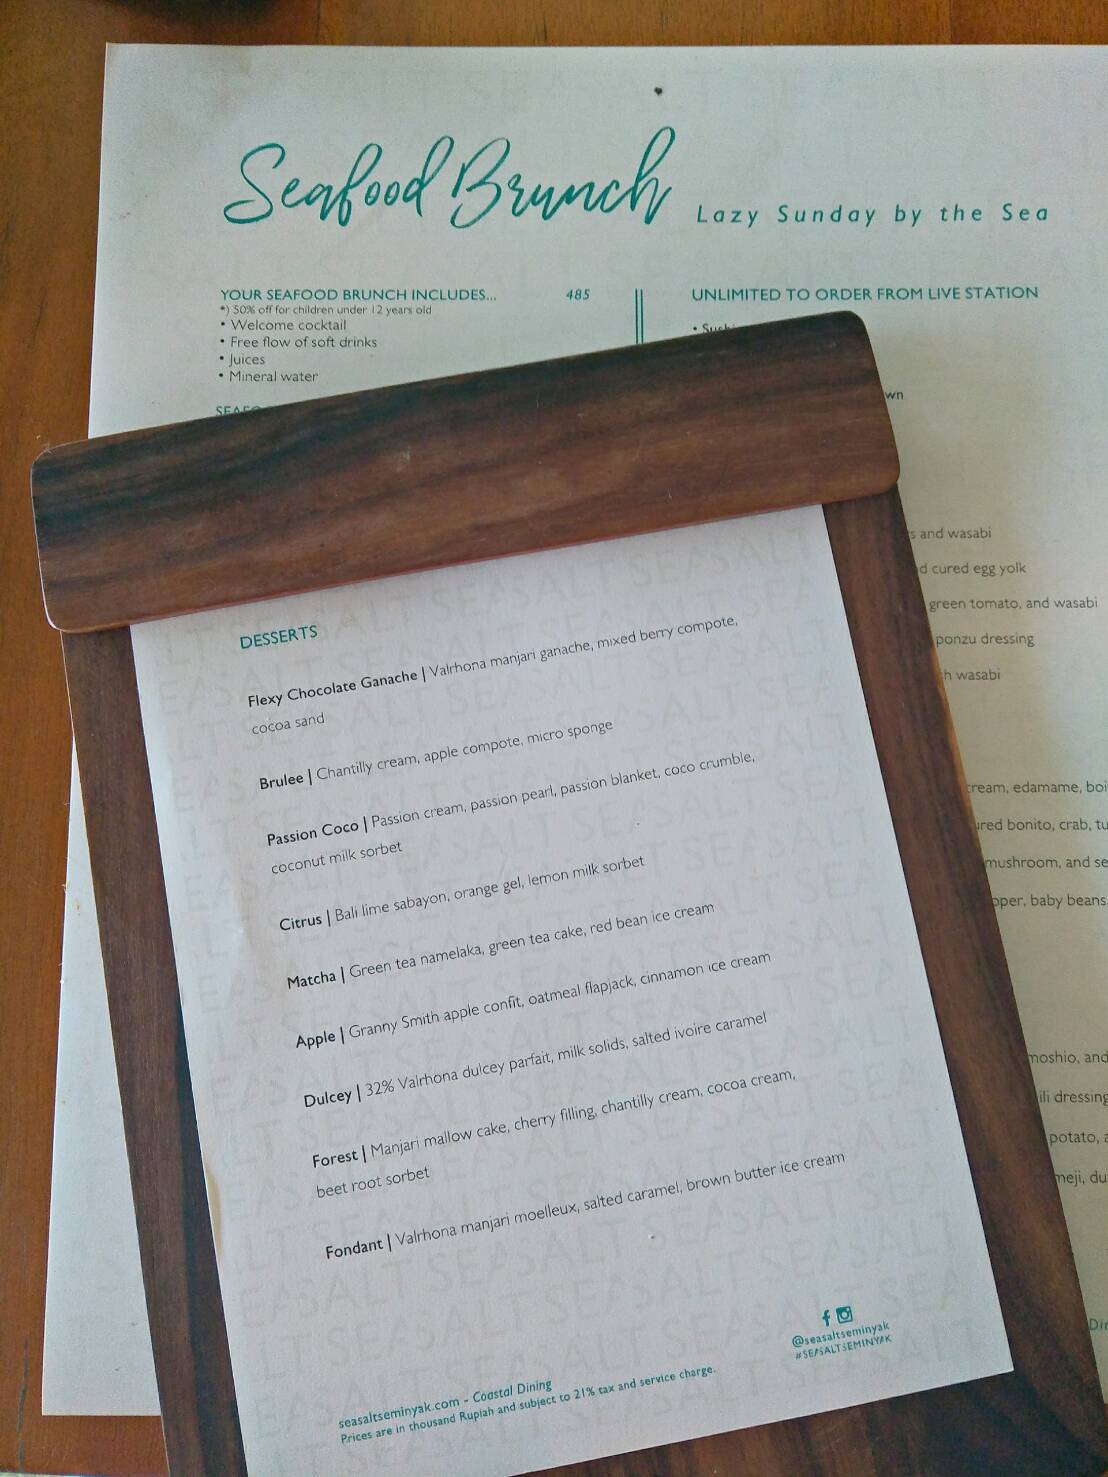 Seafood Brunch Lazy Sunday by the Sea
YOUR SEAFOOD BRUNCH INCLUDES... 485
*) 50% off for children under 12 years old
• Welcome cocktail
• Free flow of soft drinks
• Juices
• Mineral water
UNLIMITED TO ORDER FROM LIVE STATION
and wasabi
cured egg yolk
green tomato, and wasabi
ponzu dressing
wasabi
edamame,
bonito, crab,
mushroom, and
baby beans
and
dressing
potato,
DESSERTS
Flexy Chocolate Ganache | Valrhona manjari ganache, mixed berry compote,
cocoa sand
Brulee | Chantilly cream, apple compote, micro sponge
Passion Coco | Passion cream, passion pearl, passion blanket, coco crumble,
coconut milk sorbet
Citrus | Bali lime sabayon, orange gel, lemon milk sorbet
Matcha | Green tea namelaka, green tea cake, red bean ice cream
Apple | Granny Smith apple confit, oatmeal flapjack, cinnamon ice cream
Dulcey | 32% Valrhona dulcey parfait, milk solids, salted ivoire caramel
Forest | Manjari mallow cake, cherry filling, chantilly cream, cocoa cream,
beet root sorbet
Fondant | Valrhona manjari moelleux, salted caramel, brown butter ice cream
@seasaltseminyak
#SEASALTSEMINYAK
seasaltseminyak.com - Coastal Dining
Prices are in thousand Rupiah and subject to 21% tax and service charge.